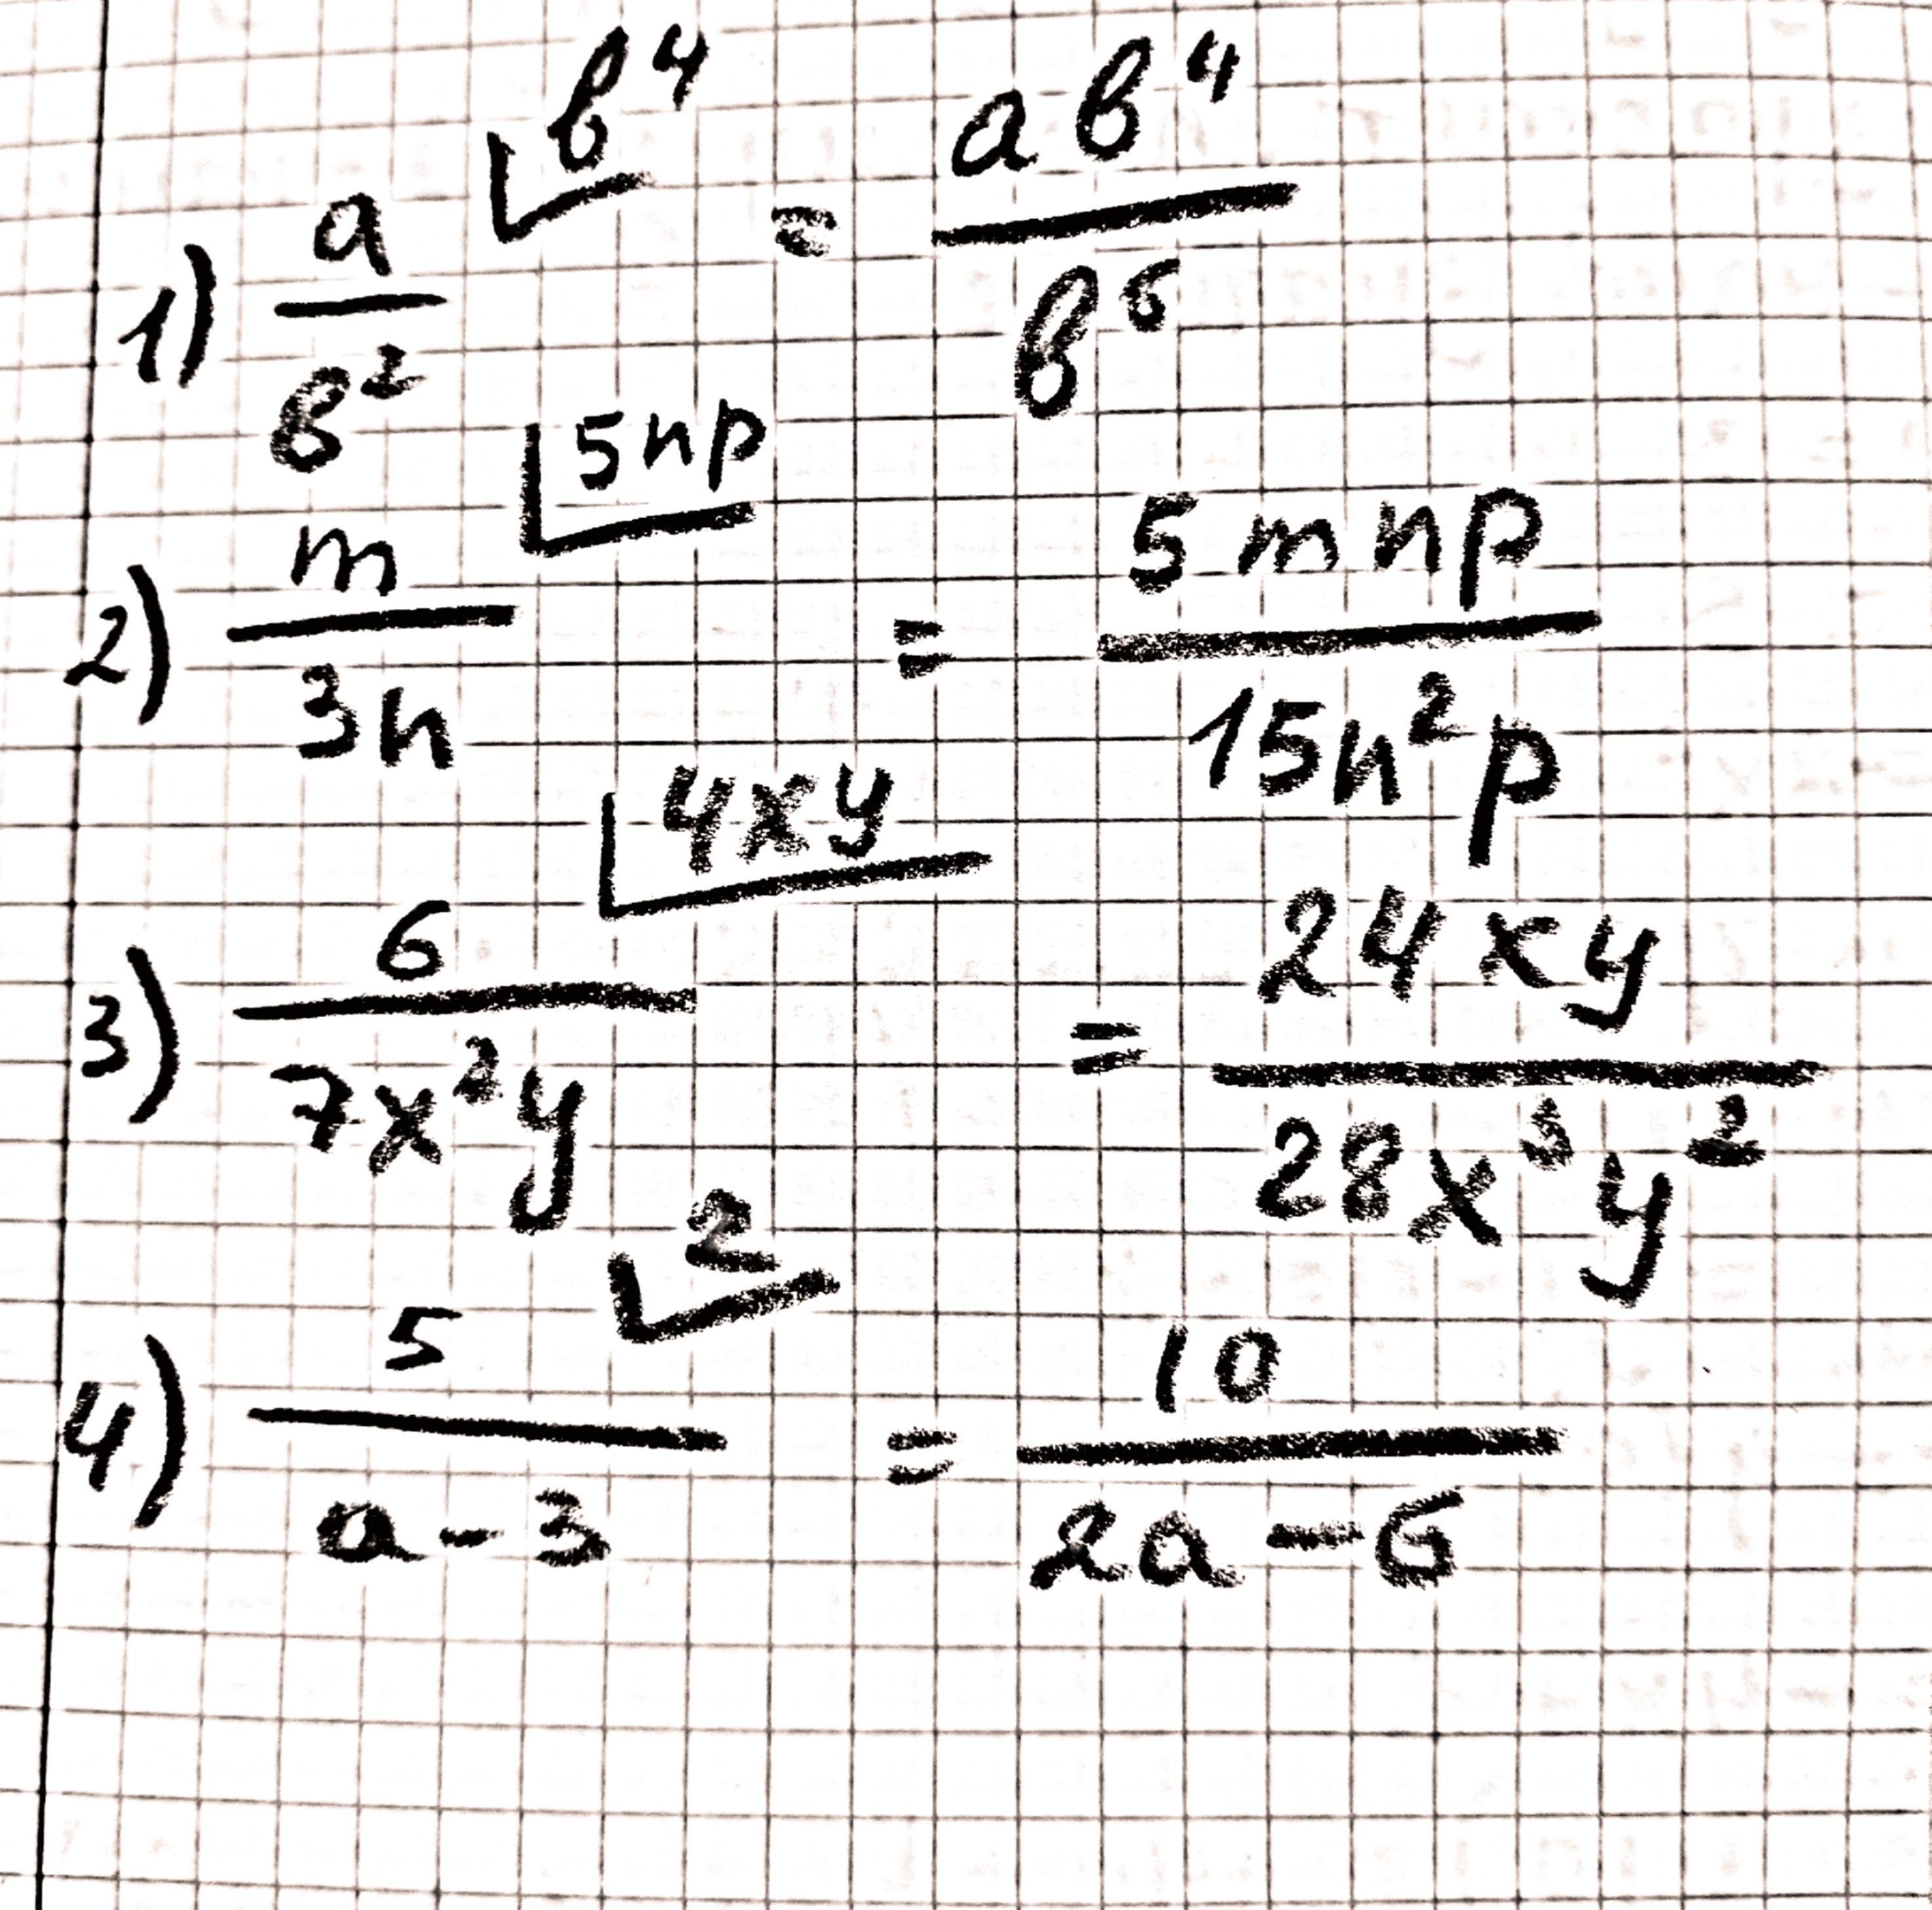 1) a/b² ⌊b⁴ = ab⁴/b⁶
2) m/3n ⌊5np = 5mnp/15n²p
3) 6/7x²y ⌊4xy = 24xy/28x³y²
4) 5/a-3 ⌊2 = 10/2a-6